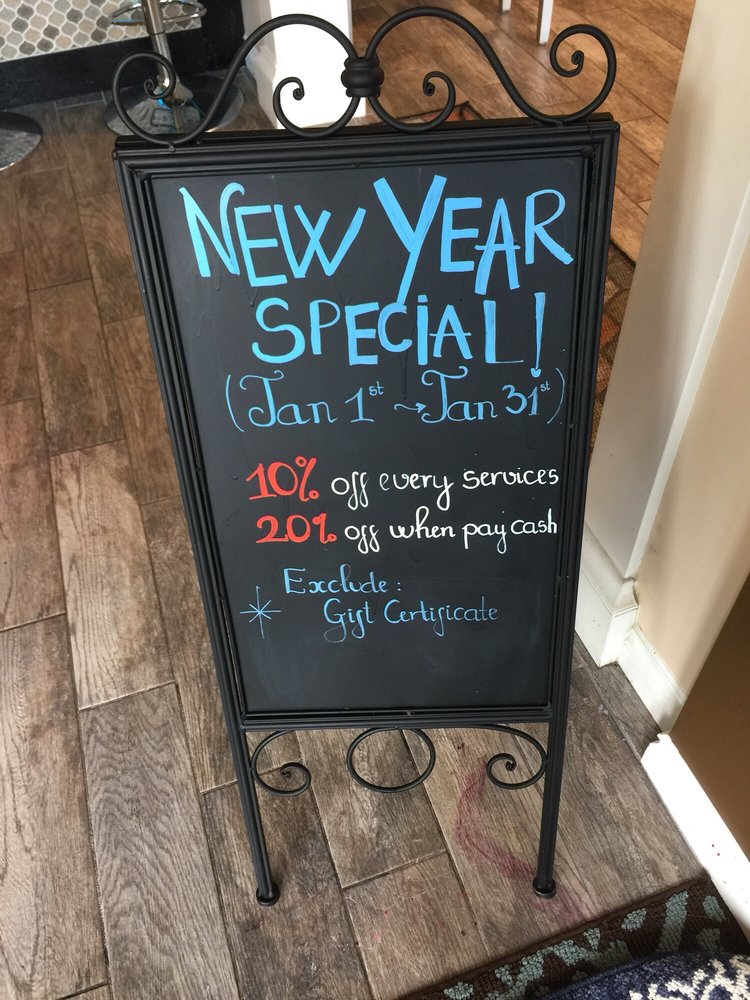 NEW YEAR
SPECiAL!
(Jan 1st → Jan 31st)
10% off every services
20% off when pay cash
Exclude:
* Gift Certificate